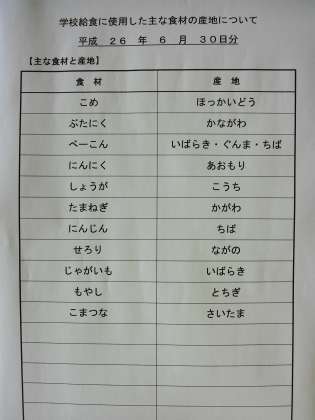 学校給食に使用した主な食材の産地について
平成 26 年 6 月 30日分
【主な食材と産地】
食 材 産 地
こめ ほっかいどう
ぶたにく かながわ
べーこん いばらき・ぐんま・ちば
にんにく あおもり
しょうが こうち
たまねぎ かがわ
にんじん ちば
せろり ながの
じゃがいも いばらき
もやし とちぎ
こまつな さいたま